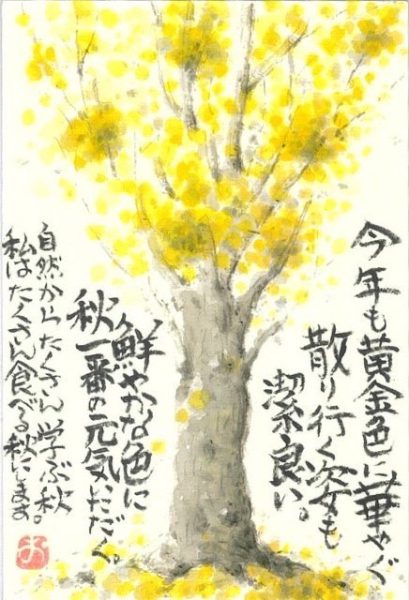 今年も黄金色に華やぐ
散り行く姿も
潔良い。
鮮やかな色に
秋一番の元気いただく。
自然からたくさん学ぶ秋。
私はたくさん食べる秋にします